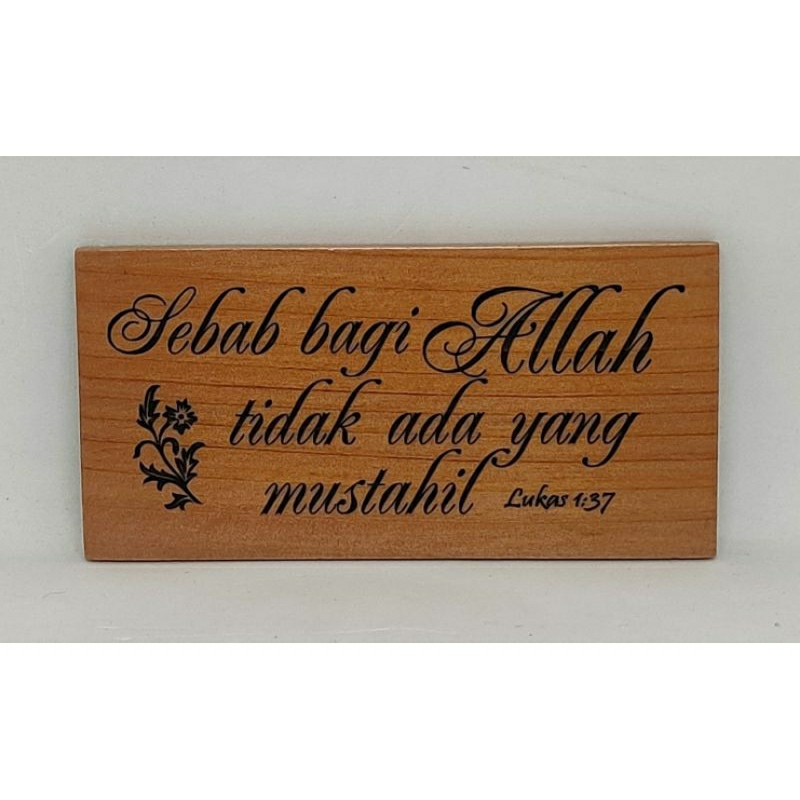 Sebab bagi Allah
tidak ada yang
mustahil Lukas 1:37